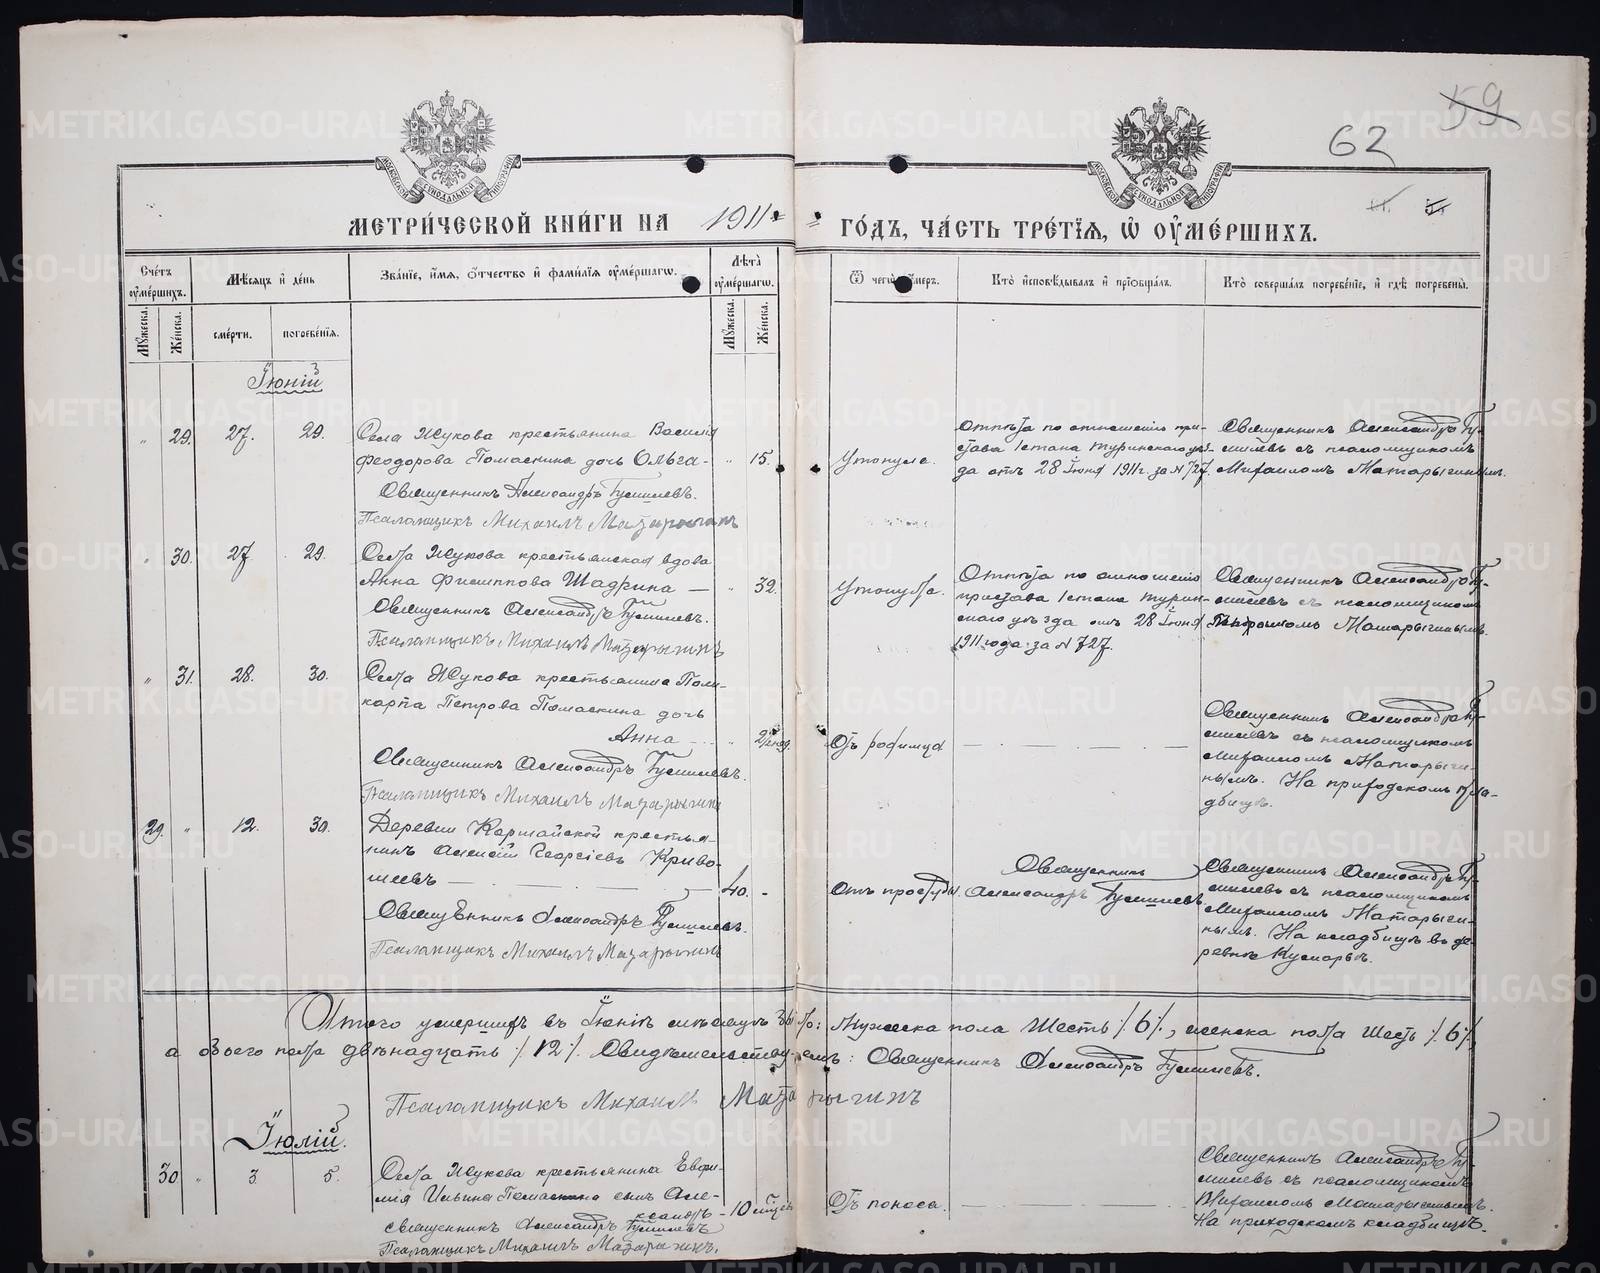 59
62
МЕТРИ́ЧЕСКОЙ КНИ́ГИ НА 1911 ГО́ДЪ, ЧА́СТЬ ТРЕ́ТІЯ, Ѡ҆ ОУ҆МЕ́РШИХЪ.
Сче́тъ оу҆ме́ршихъ.
Мѣ́сяцъ и҆ де́нь
Зва́ніе, и҆́мя, ѻ҆́тчество и҆ фами́лія оу҆ме́ршагѡ.
Лѣ́та оу҆ме́ршагѡ.
Ѿ чегѡ̀ оу҆́меръ.
Кто̀ и҆сповѣ́дывалъ и҆ пріѡбща́лъ.
Кто̀ соверша́лъ погребе́ніе, и҆ гдѣ̀ погребены̀.
Му́жеска.
Же́нска.
сме́рти.
погребе́нія.
Му́жеска.
Же́нска.
Іюній
„ 29. 27. 29.
Села Жукова крестьянина Василія
Феодорова Помаскина дочь Ольга - „ 15.
Священникъ Александръ
Псаломщикъ Михаилъ Матарыгинъ
Утонула.
Отпѣта по отношенію при-
става 1 стана Туринскаго уѣз-
да отъ 28 Іюня 1911 г. за N 727.
Священникъ Александръ
съ псаломщикомъ
Михаиломъ Матарыгинымъ.
„ 30. 27 29.
Села Жукова крестьянская вдова
Анна Филиппова Шадрина — „ 32.
Священникъ Александръ
Псаломщикъ Михаилъ Матарыгинъ
Утонула.
Отпѣта по отношенію
пристава 1 стана Турин-
скаго уѣзда отъ 28 Іюня
1911 года за N 727.
Священникъ Александръ
съ псаломщикомъ
Матарыгинымъ.
„ 31. 28. 30.
Села Жукова крестьянина Поли-
карпа Петрова Помаскина дочь
Анна „
Священникъ Александръ
Псаломщикъ Михаилъ Матарыгинъ
Отъ родимца
Священникъ Александръ
съ псаломщикомъ
Михаиломъ Матарыги-
нымъ. На приходскомъ кла-
дбищѣ.
29. „ 12. 30.
Деревни крестья-
нинъ Алексій Георгіевъ Криво-
шеевъ — 40. -
Священникъ Александръ
Псаломщикъ Михаилъ Матарыгинъ
Отъ простуды.
Священникъ
Александръ
Священникъ Александръ
съ псаломщикомъ
Михаиломъ Матарыги-
нымъ. На кладбищѣ въ де-
ревнѣ
Итого умершихъ въ Іюнѣ мѣсяцѣ было: Мужеска пола Шесть /6/, женска пола Шесть /6/,
а обоего пола двѣнадцать /12/. Свидѣтельствуемъ: Священникъ Александръ
Псаломщикъ Михаилъ Матарыгинъ
Іюлій.
30 „ 3. 5.
Села Жукова крестьянина Евфи-
мія Ильина Помаскина сынъ Але-
ксандръ - 10 мѣсяц.
священникъ Александръ
Псаломщикъ Михаилъ Матарыгинъ.
Отъ поноса.
Священникъ Александръ
съ псаломщикомъ
Михаиломъ Матарыгинымъ.
На приходскомъ кладбищѣ.
METRIKI.GASO-URAL.RU